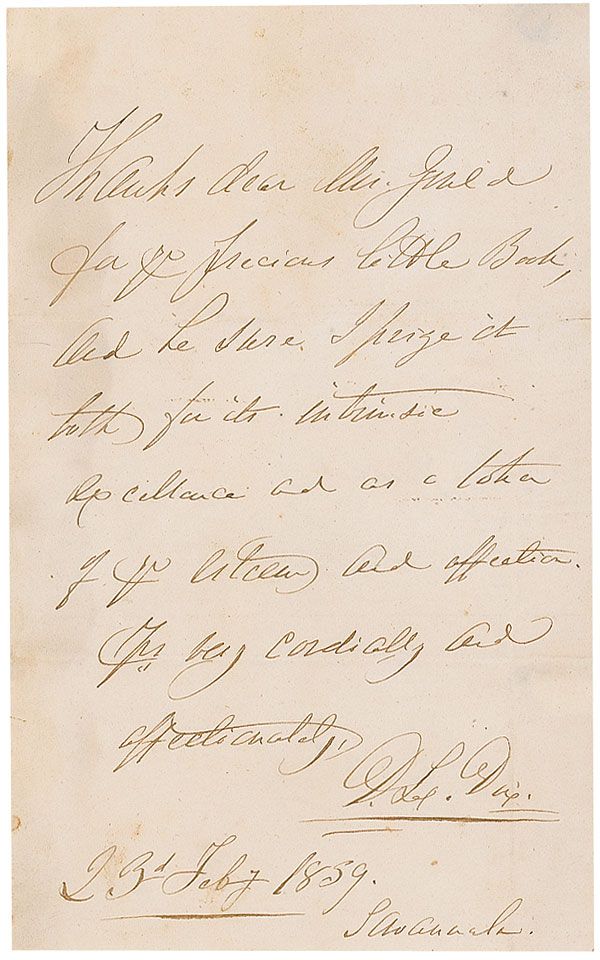 Thanks dear Mr. Gould
for yr precious little Book,
and be sure I prize it
both for its intrinsic
excellence and as a token
of yr esteem and affection.
Yrs very cordially and
affectionately,
D. L. Dix.
23d Feby 1859.
Savannah.